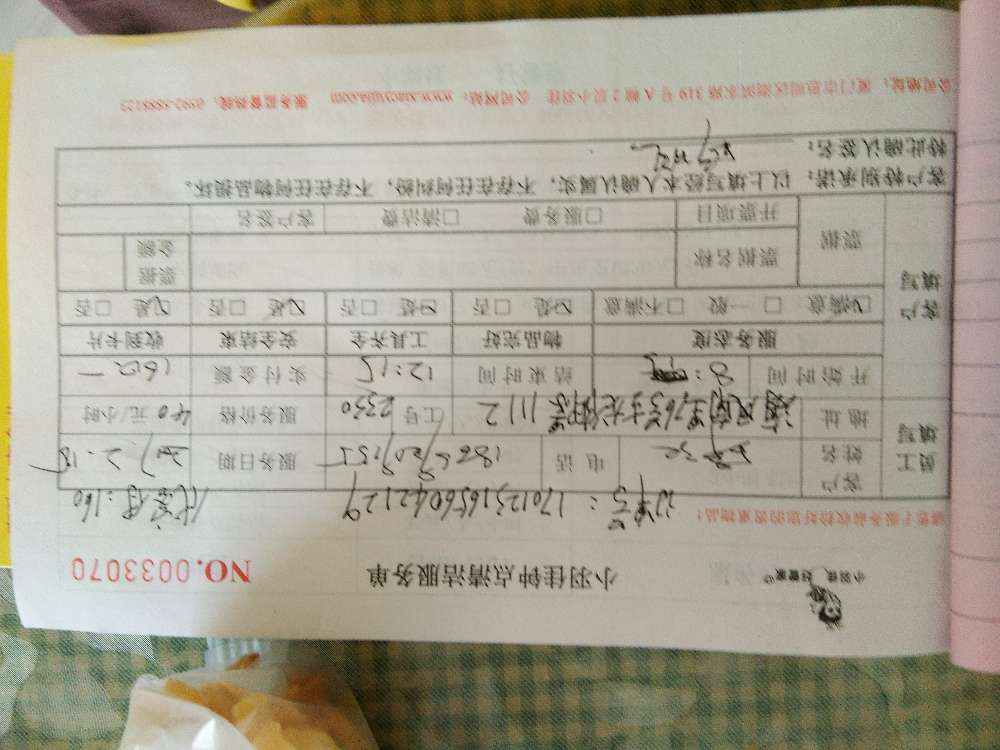 小羽佳 好管家
小羽佳钟点清洁服务单
NO.0033070
请您于服务前收检好您的贵重物品!
订单号:1701231656042129
代客保:160
员工填写
客户姓名
电话
服务日期
2017.2.18
地址
1112
工号
2330
服务价格
40元/小时
开始时间
8:
结束时间
12:15
实付金额
160一
客户填写
服务态度
物品完好
工具齐全
安全结束
收到卡片
☑满意 □一般 □不满意
☑是 □否
☑是 □否
☑是 □否
☑是 □否
票据
票据名称
票据金额
开票项目
□服务费 □清洁费
客户签名
客户特别承诺:以上填写经本人确认属实,不存在任何纠纷,不存在任何物品损坏。
特此确认签名:
公司地址:厦门市思明区湖滨东路319号A幢2层小羽佳 公司网站:www.xiaoyujia.com 服务监督热线:0592-5888125